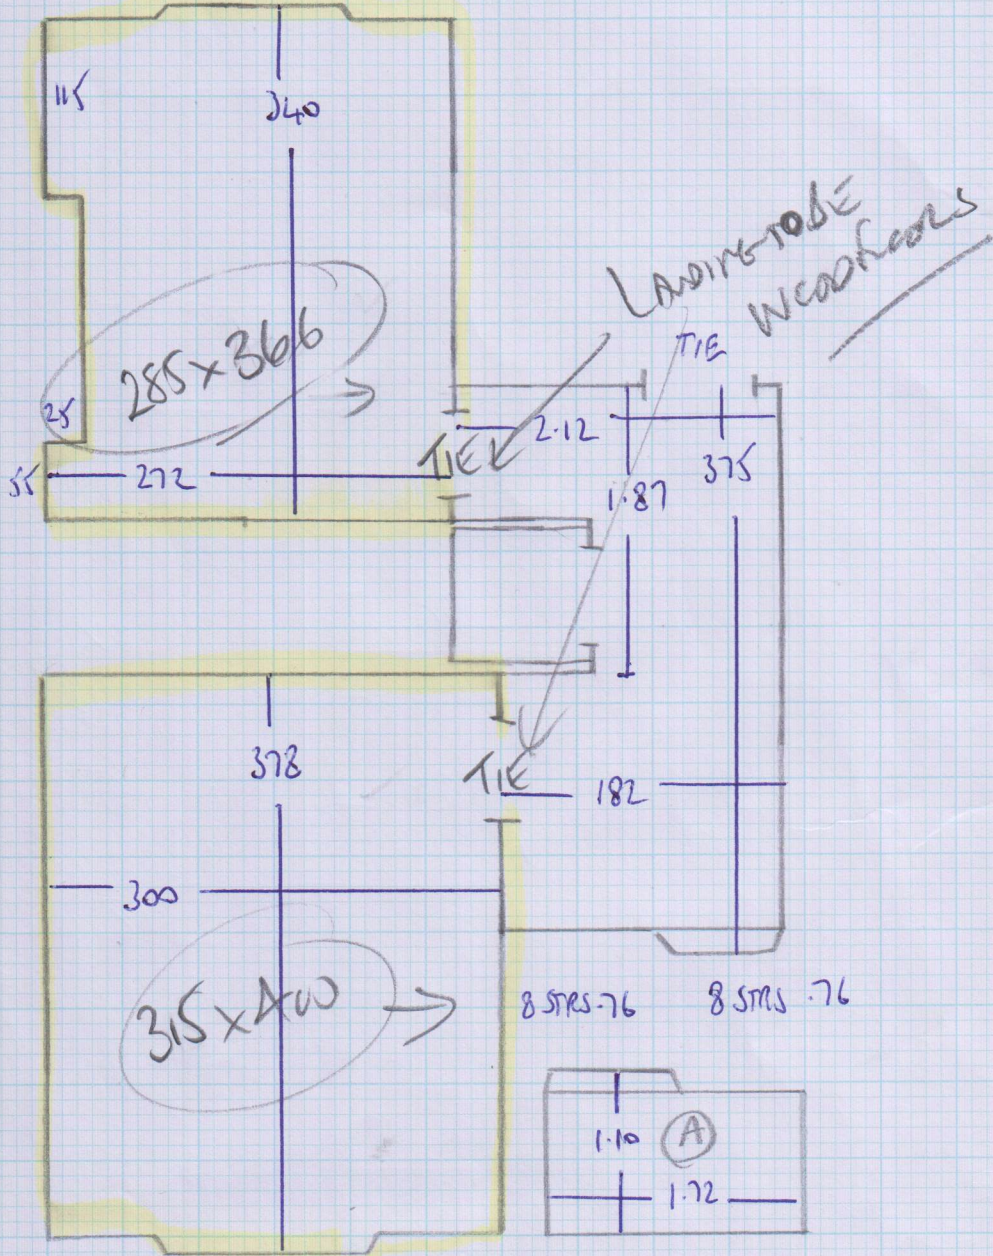 115
340
LANDING TO BE
WOODFLOORS
285 x 366
TIE
25
TIE
2.12
375
55
272
1.87
378
TIE
182
300
315 x 400
8 STRS .76
8 STRS .76
1.10
A
1.72